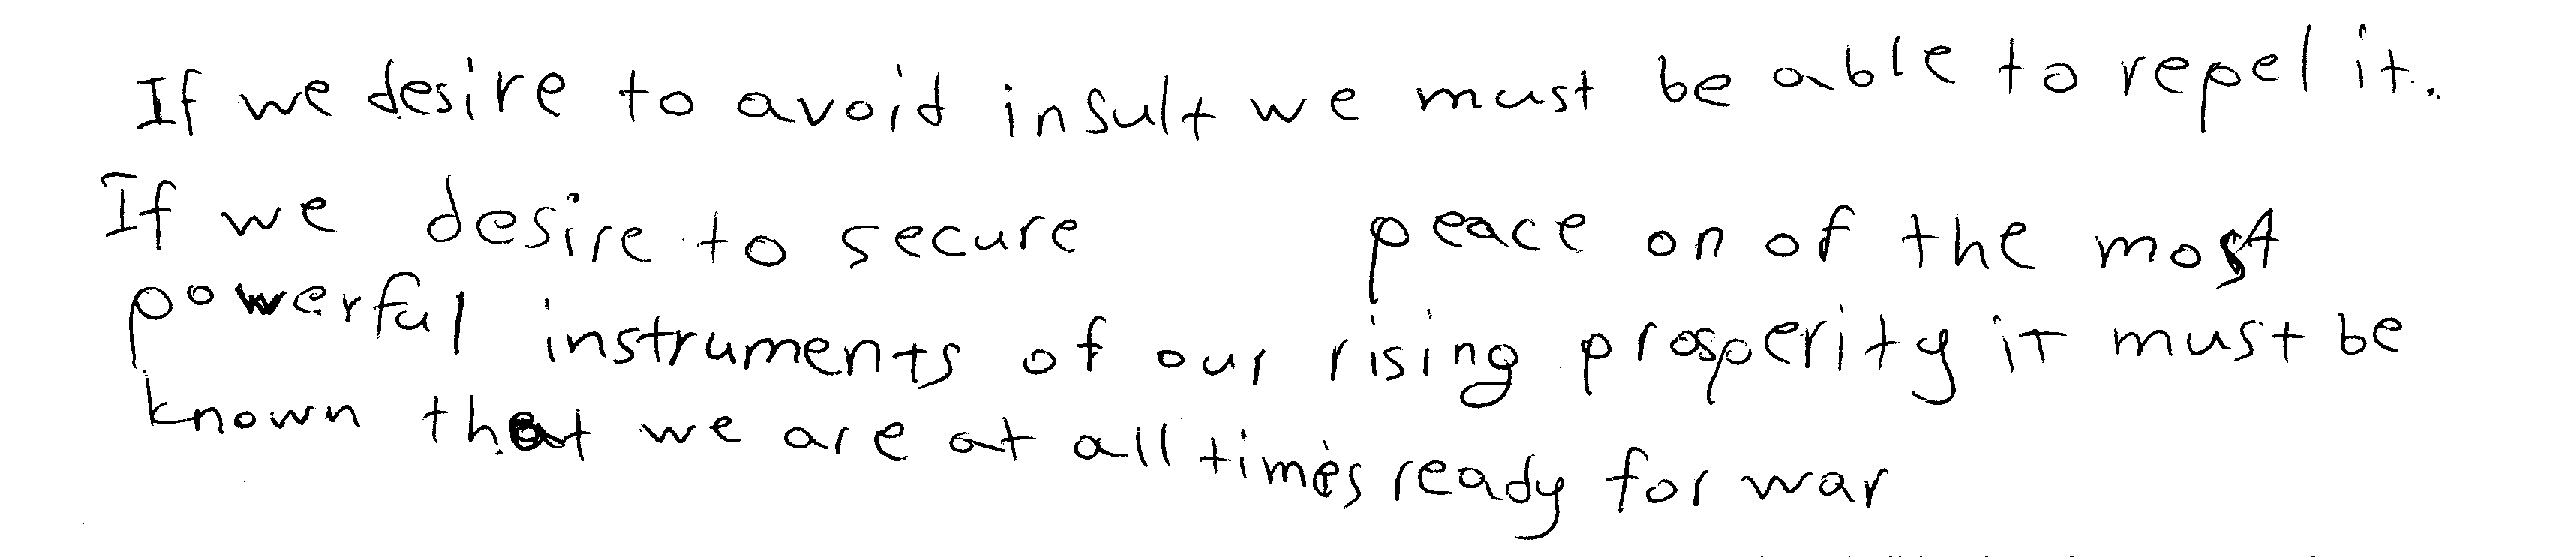 If we desire to avoid insult we must be able to repel it.
If we desire to secure peace on of the most
powerful instruments of our rising prosperity it must be
known that we are at all times ready for war